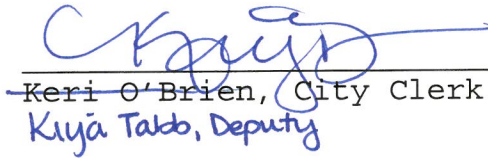 Keri O'Brien, City Clerk
Kiyja Tabb, Deputy